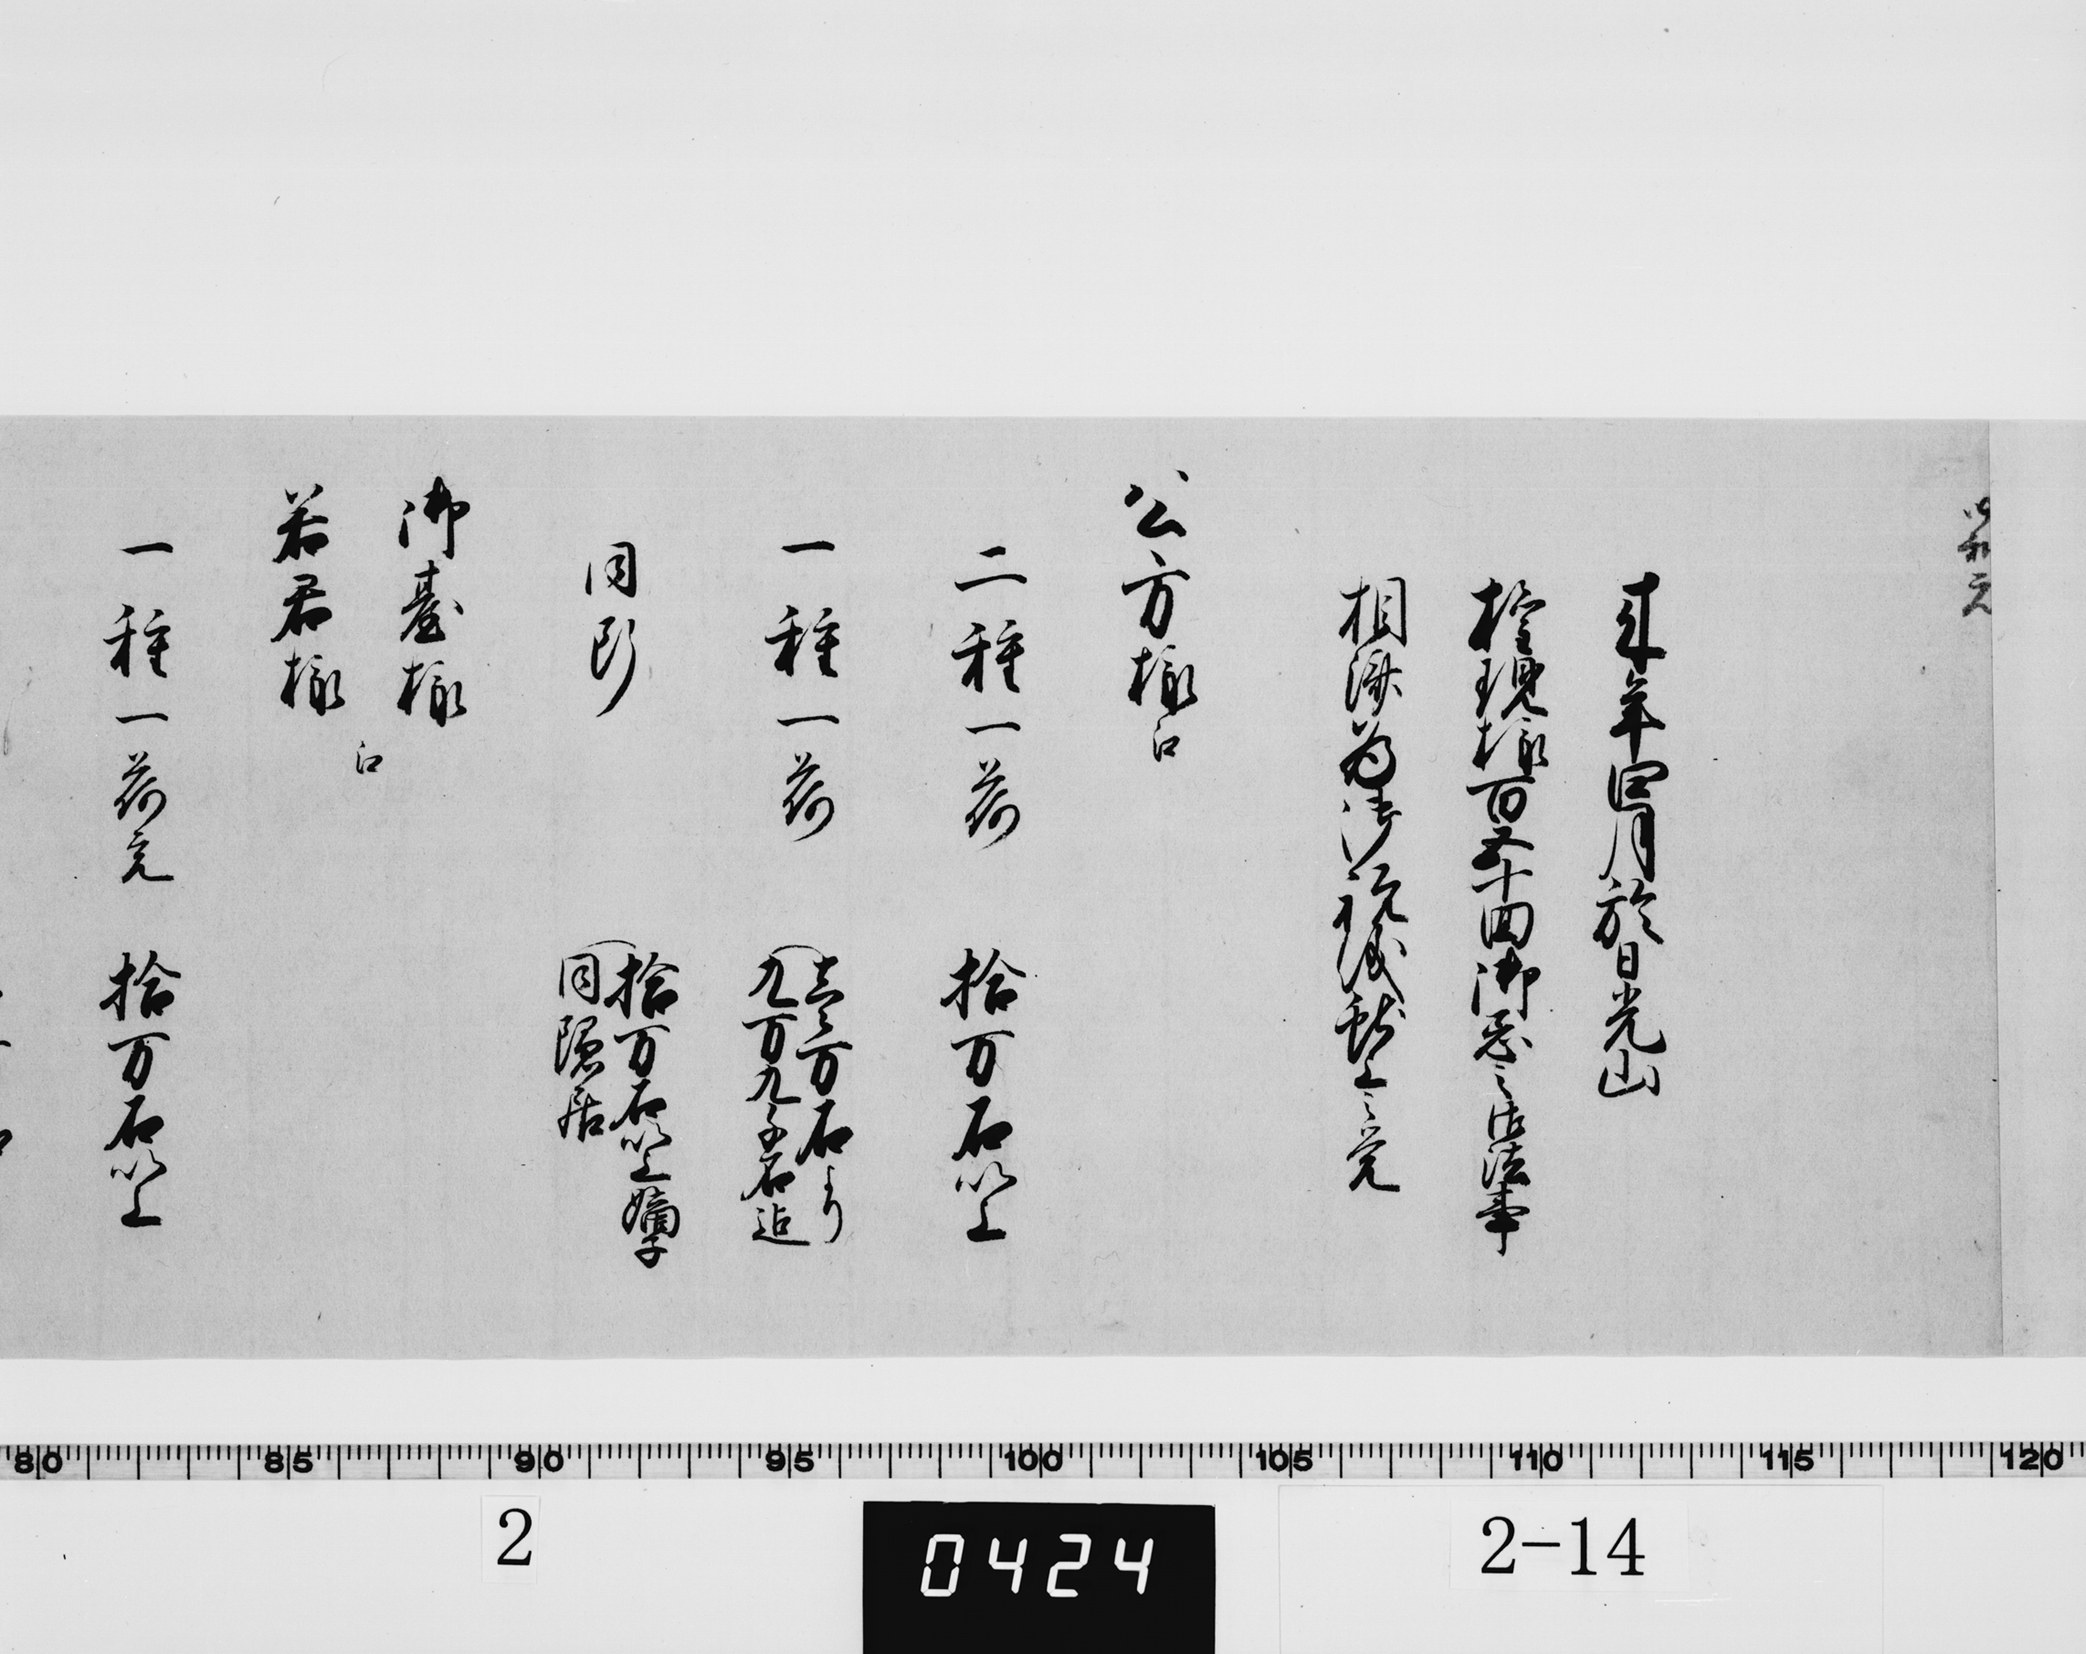 明和元
来年四月於日光山
権現様百五十回御忌之御法事
相済為御祝儀献上之覚
公方様江
二種一荷 拾万石以上
一種一荷 壱万石より
九万九千石迄
同断 拾万石以上嫡子
同隠居
御臺様
若君様
江
一種一荷充 拾万石以上
80 85 90 95 100 105 110 115 120
2 0424 2-14